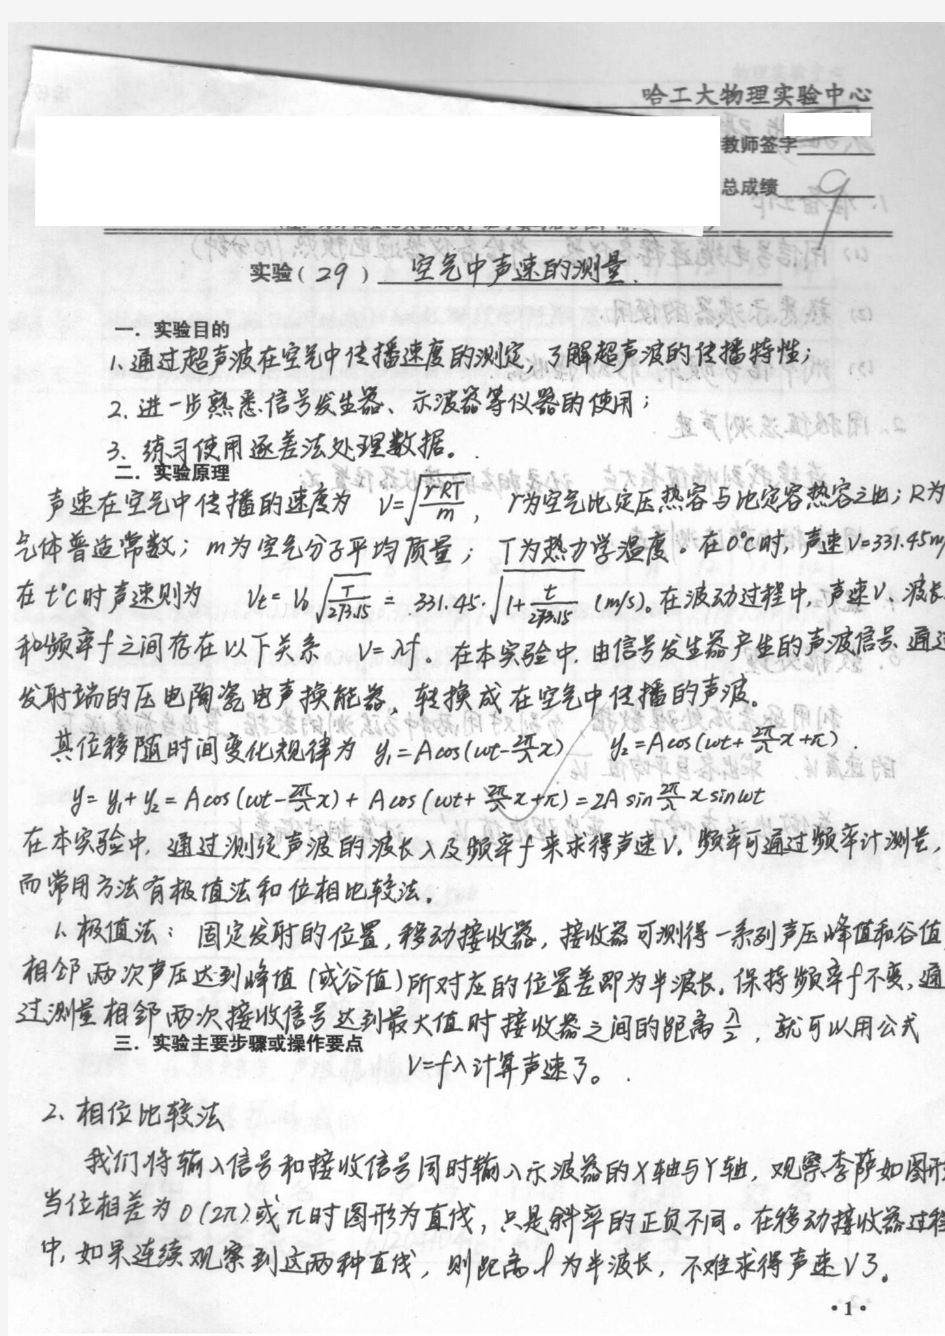 哈工大物理实验中心
教师签字
总成绩 9
实验(29) 空气中声速的测量.
一. 实验目的
1. 通过超声波在空气中传播速度的测定, 了解超声波的传播特性;
2. 进一步熟悉信号发生器、示波器等仪器的使用;
3. 练习使用逐差法处理数据。
二. 实验原理
声速在空气中传播的速度为 V=√(rRT/m), r为空气比定压热容与比定容热容之比; R为
气体普适常数; m为空气分子平均质量; T为热力学温度。在0℃时, 声速V=331.45m/
在t℃时声速则为 V₀=V₀√(T/273.15)=331.45·√(1+t/273.15) (m/s)。在波动过程中, 声速V、波长
和频率f之间存在以下关系 V=λf. 在本实验中, 由信号发生器产生的声波信号, 通过
发射端的压电陶瓷电声换能器, 转换成在空气中传播的声波。
其位移随时间变化规律为 y₁=Acos(ωt-2π/λ x) y₂=Acos(ωt+2π/λ x+π).
y=y₁+y₂=Acos(ωt-2π/λ x)+Acos(ωt+2π/λ x+π)=2A sin 2π/λ x sinωt
在本实验中, 通过测定声波的波长λ及频率f来求得声速V。频率可通过频率计测量,
而常用方法有极值法和位相比较法。
1. 极值法: 固定发射的位置, 移动接收器, 接收器可测得一系列声压峰值和谷值
相邻两次声压达到峰值(或谷值)所对应的位置差即为半波长。保持频率f不变, 通
过测量相邻两次接收信号达到最大值时接收器之间的距离λ/2, 就可以用公式
三. 实验主要步骤或操作要点
V=fλ计算声速了。
2. 相位比较法
我们将输入信号和接收信号同时输入示波器的X轴与Y轴, 观察李萨如图形
当位相差为0(2π)或π时图形为直线, 只是斜率的正负不同。在移动接收器过程
中, 如果连续观察到这两种直线, 则距离l为半波长, 不难求得声速V了。
·1·